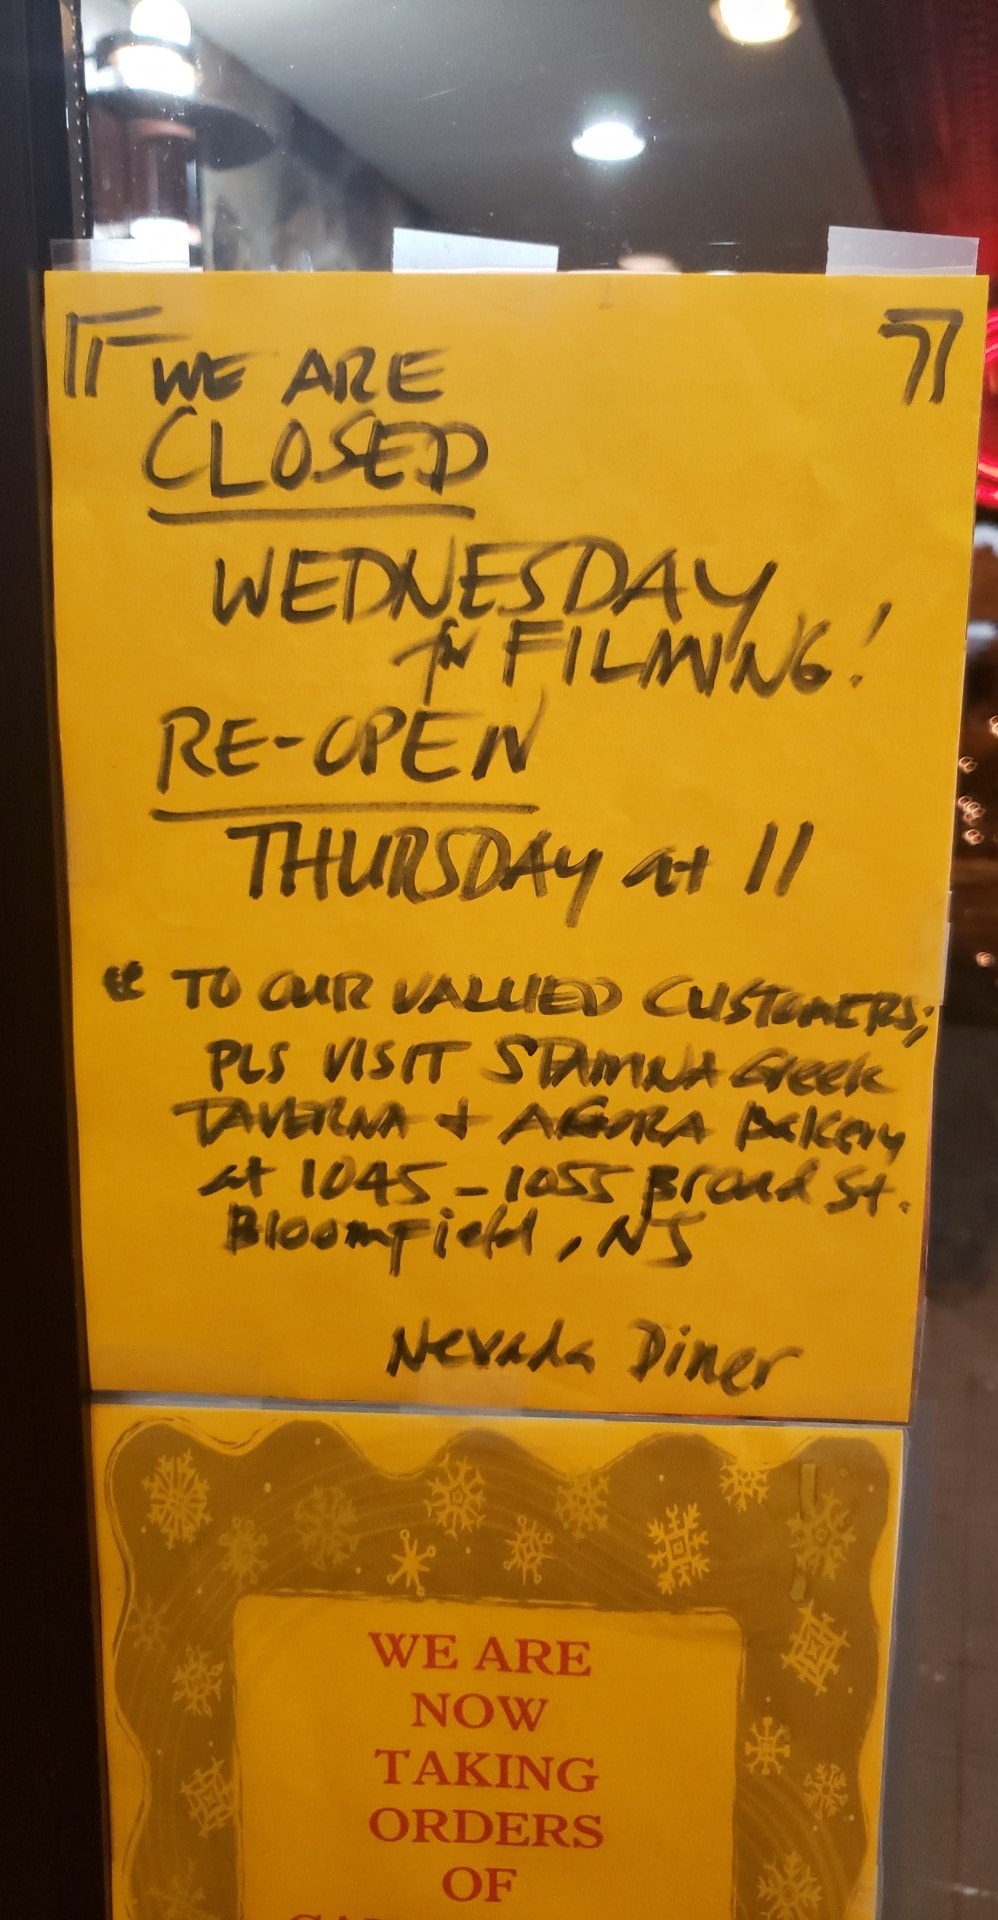 "WE ARE
CLOSED"
WEDNESDAY
for FILMING!
RE-OPEN
THURSDAY at 11
" TO OUR VALUED CUSTOMERS;
PLS VISIT STAMNA Greek
TAVERNA + AGORA Bakery
at 1045-1055 Broad St.
Bloomfield, NJ
Nevada Diner
WE ARE
NOW
TAKING
ORDERS
OF